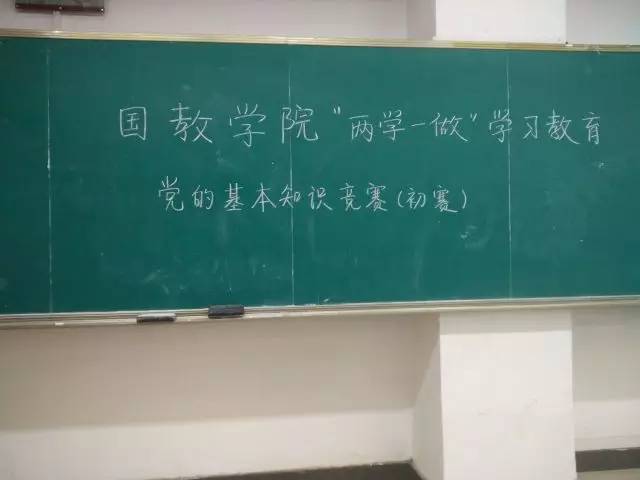 国教学院"两学一做"学习教育
党的基本知识竞赛(初赛)